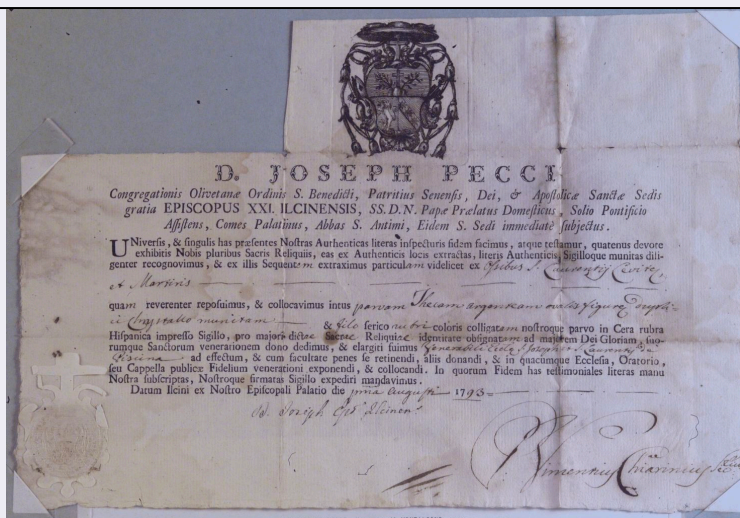 D. JOSEPH PECCI
Congregationis Olivetanæ Ordinis S. Benedicti, Patritius Senensis, Dei, & Apostolicæ Sanctæ Sedis
gratia EPISCOPUS XXI. ILCINENSIS, SS. D. N. Papæ Prælatus Domesticus, Solio Pontificio
Assistens, Comes Palatinus, Abbas S. Antimi, Eidem S. Sedi immediatè subjectus.
UNiversis, & singulis has præsentes Nostras Authenticas literas inspecturis fidem facimus, atque testamur, quatenus devote
exhibitis Nobis pluribus Sacris Reliquiis, eas ex Authenticis locis extractas, literis Authenticis, Sigilloque munitas dili-
genter recognovimus, & ex illis Sequentem extraximus particulam videlicet ex Ossibus S. Laurentij Levitæ,
et Martiris
quam reverenter reposuimus, & collocavimus intus parvam Thecam argenteam ovalis figuræ
Chrystallo munitam & filo serico rubri coloris colligatam nostroque parvo in Cera rubra
Hispanica impresso Sigillo, pro majori dictæ Sacræ Reliquiæ identitate obsignatam ad majorem Dei Gloriam, suo-
rumque Sanctorum venerationem dono dedimus, & elargiti fuimus Venerabili S. Joseph Laurentij
ad effectum, & cum facultate penes se retinendi, aliis donandi, & in quacumque Ecclesia, Oratorio,
seu Cappella publicæ Fidelium venerationi exponendi, & collocandi. In quorum Fidem has testimoniales literas manu
Nostra subscriptas, Nostroque firmatas Sigillo expediri mandavimus.
Datum Ilcini ex Nostro Episcopali Palatio die prima Augusti 1793
D. Joseph Ilcinen
Vincentius Chiarineus